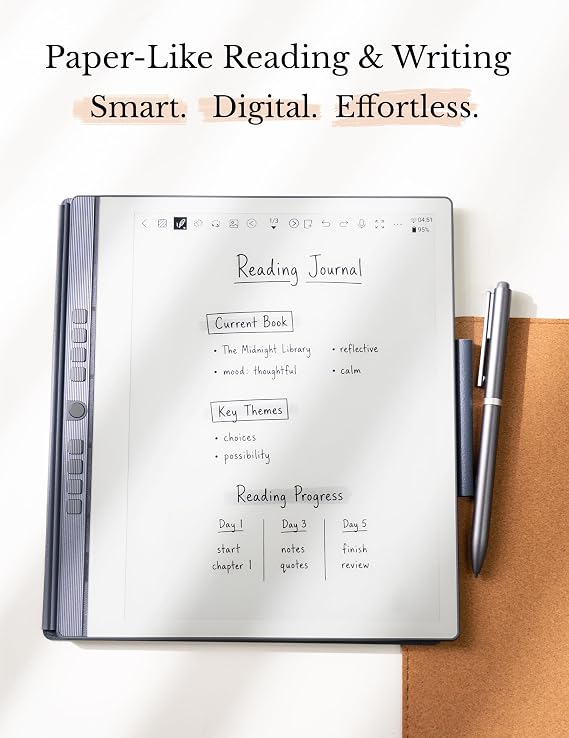 Paper-Like Reading & Writing
Smart. Digital. Effortless.
1/3
04:51
95%
Reading Journal
Current Book
• The Midnight Library • reflective
• mood: thoughtful • calm
Key Themes
• choices
• possibility
Reading Progress
Day 1 Day 3 Day 5
start notes finish
chapter 1 quotes review